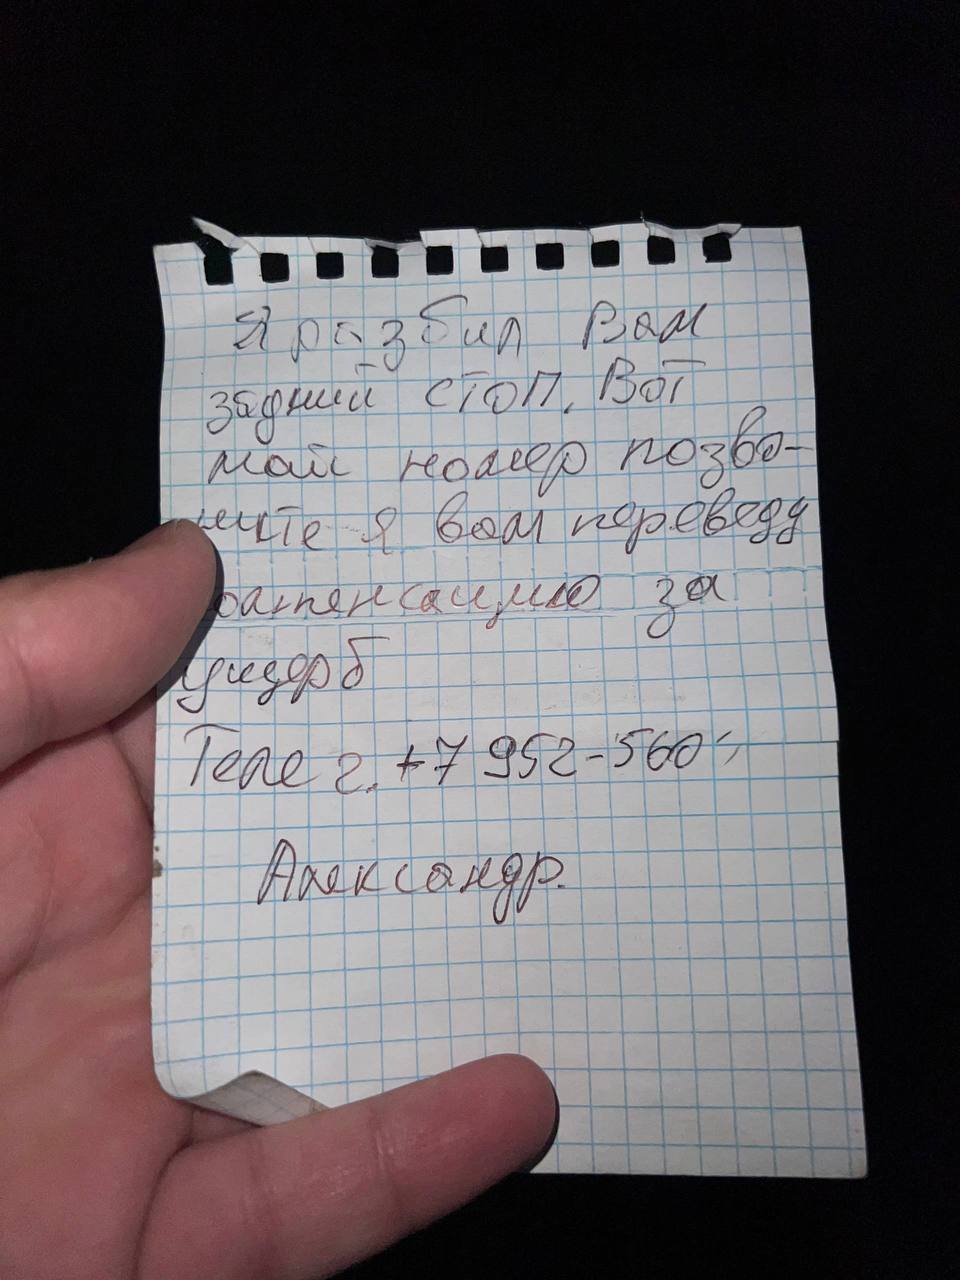 Я разбил Вам
задний стоп. Вот
мой номер позво-
ните я вам переведу
компенсацию за
ущерб
Теле г. +7 952-560
Александр.